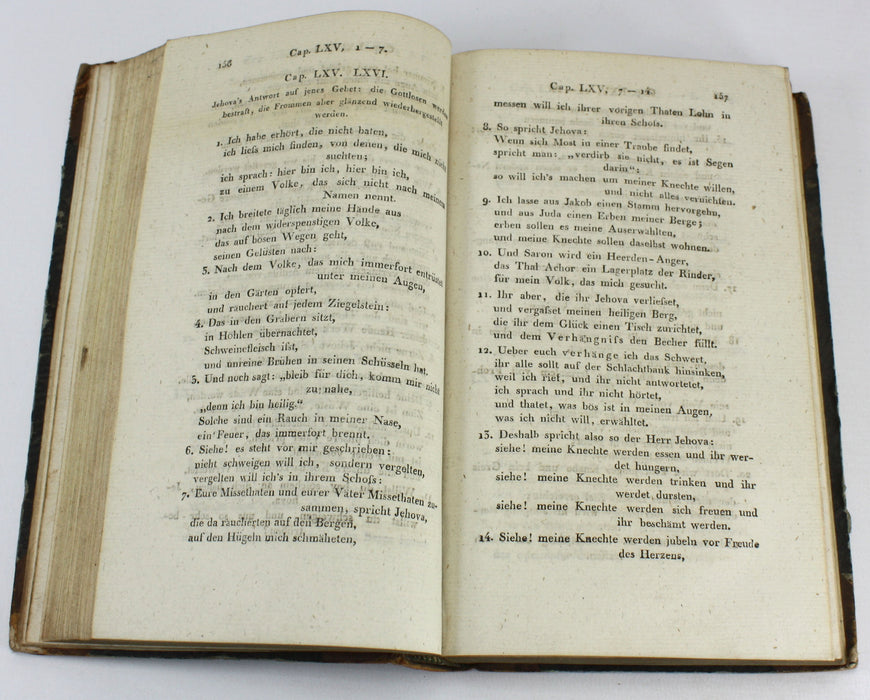 156
Cap. LXV, 1 — 7.
Cap. LXV. LXVI.
Jehova's Antwort auf jenes Gebet: die Gottlosen werden
bestraft, die Frommen aber glänzend wiederhergestellt
werden.
1. Ich habe erhört, die nicht baten,
ich liess mich finden, von denen, die mich nicht
suchten;
ich sprach: hier bin ich, hier bin ich,
zu einem Volke, das sich nicht nach meinem
Namen nennt.
2. Ich breitete täglich meine Hände aus
nach dem widerspenstigen Volke,
das auf bösen Wegen geht,
seinen Gelüsten nach:
3. Nach dem Volke, das mich immerfort entrüstet
unter meinen Augen,
in den Gärten opfert,
und räuchert auf jedem Ziegelstein:
4. Das in den Gräbern sitzt,
in Höhlen übernachtet,
Schweinefleisch isst,
und unreine Brühen in seinen Schüsseln hat.
5. Und noch sagt: „bleib für dich, komm mir nicht
zu nahe,
„denn ich bin heilig.“
Solche sind ein Rauch in meiner Nase,
ein Feuer, das immerfort brennt.
6. Siehe! es steht vor mir geschrieben:
nicht schweigen will ich, sondern vergelten,
vergelten will ich's in ihrem Schoss:
7. Eure Missethaten und eurer Väter Missethaten zu-
sammen, spricht Jehova,
die da räucherten auf den Bergen,
auf den Hügeln mich schmäheten,
Cap. LXV, 7 — 14.
157
messen will ich ihrer vorigen Thaten Lohn in
ihren Schoss.
8. So spricht Jehova:
Wenn sich Most in einer Traube findet,
spricht man: „verdirb sie nicht, es ist Segen
darin“:
so will ich's machen um meiner Knechte willen,
und nicht alles vernichten.
9. Ich lasse aus Jakob einen Stamm hervorgehn,
und aus Juda einen Erben meiner Berge;
erben sollen es meine Auserwählten,
und meine Knechte sollen daselbst wohnen.
10. Und Saron wird ein Heerden-Anger,
das Thal Achor ein Lagerplatz der Rinder,
für mein Volk, das mich gesucht.
11. Ihr aber, die ihr Jehova verliesset,
und vergasset meinen heiligen Berg,
die ihr dem Glück einen Tisch zurichtet,
und dem Verhängniss den Becher füllt.
12. Ueber euch verhänge ich das Schwert,
ihr alle sollt auf der Schlachtbank hinsinken,
weil ich rief, und ihr nicht antwortetet,
ich sprach und ihr nicht hörtet,
und thatet, was bös ist in meinen Augen,
was ich nicht will, erwähltet.
13. Deshalb spricht also so der Herr Jehova:
siehe! meine Knechte werden essen und ihr wer-
det hungern,
siehe! meine Knechte werden trinken und ihr
werdet dursten,
siehe! meine Knechte werden sich freuen und
ihr beschämt werden.
14. Siehe! meine Knechte werden jubeln vor Freude
des Herzens,